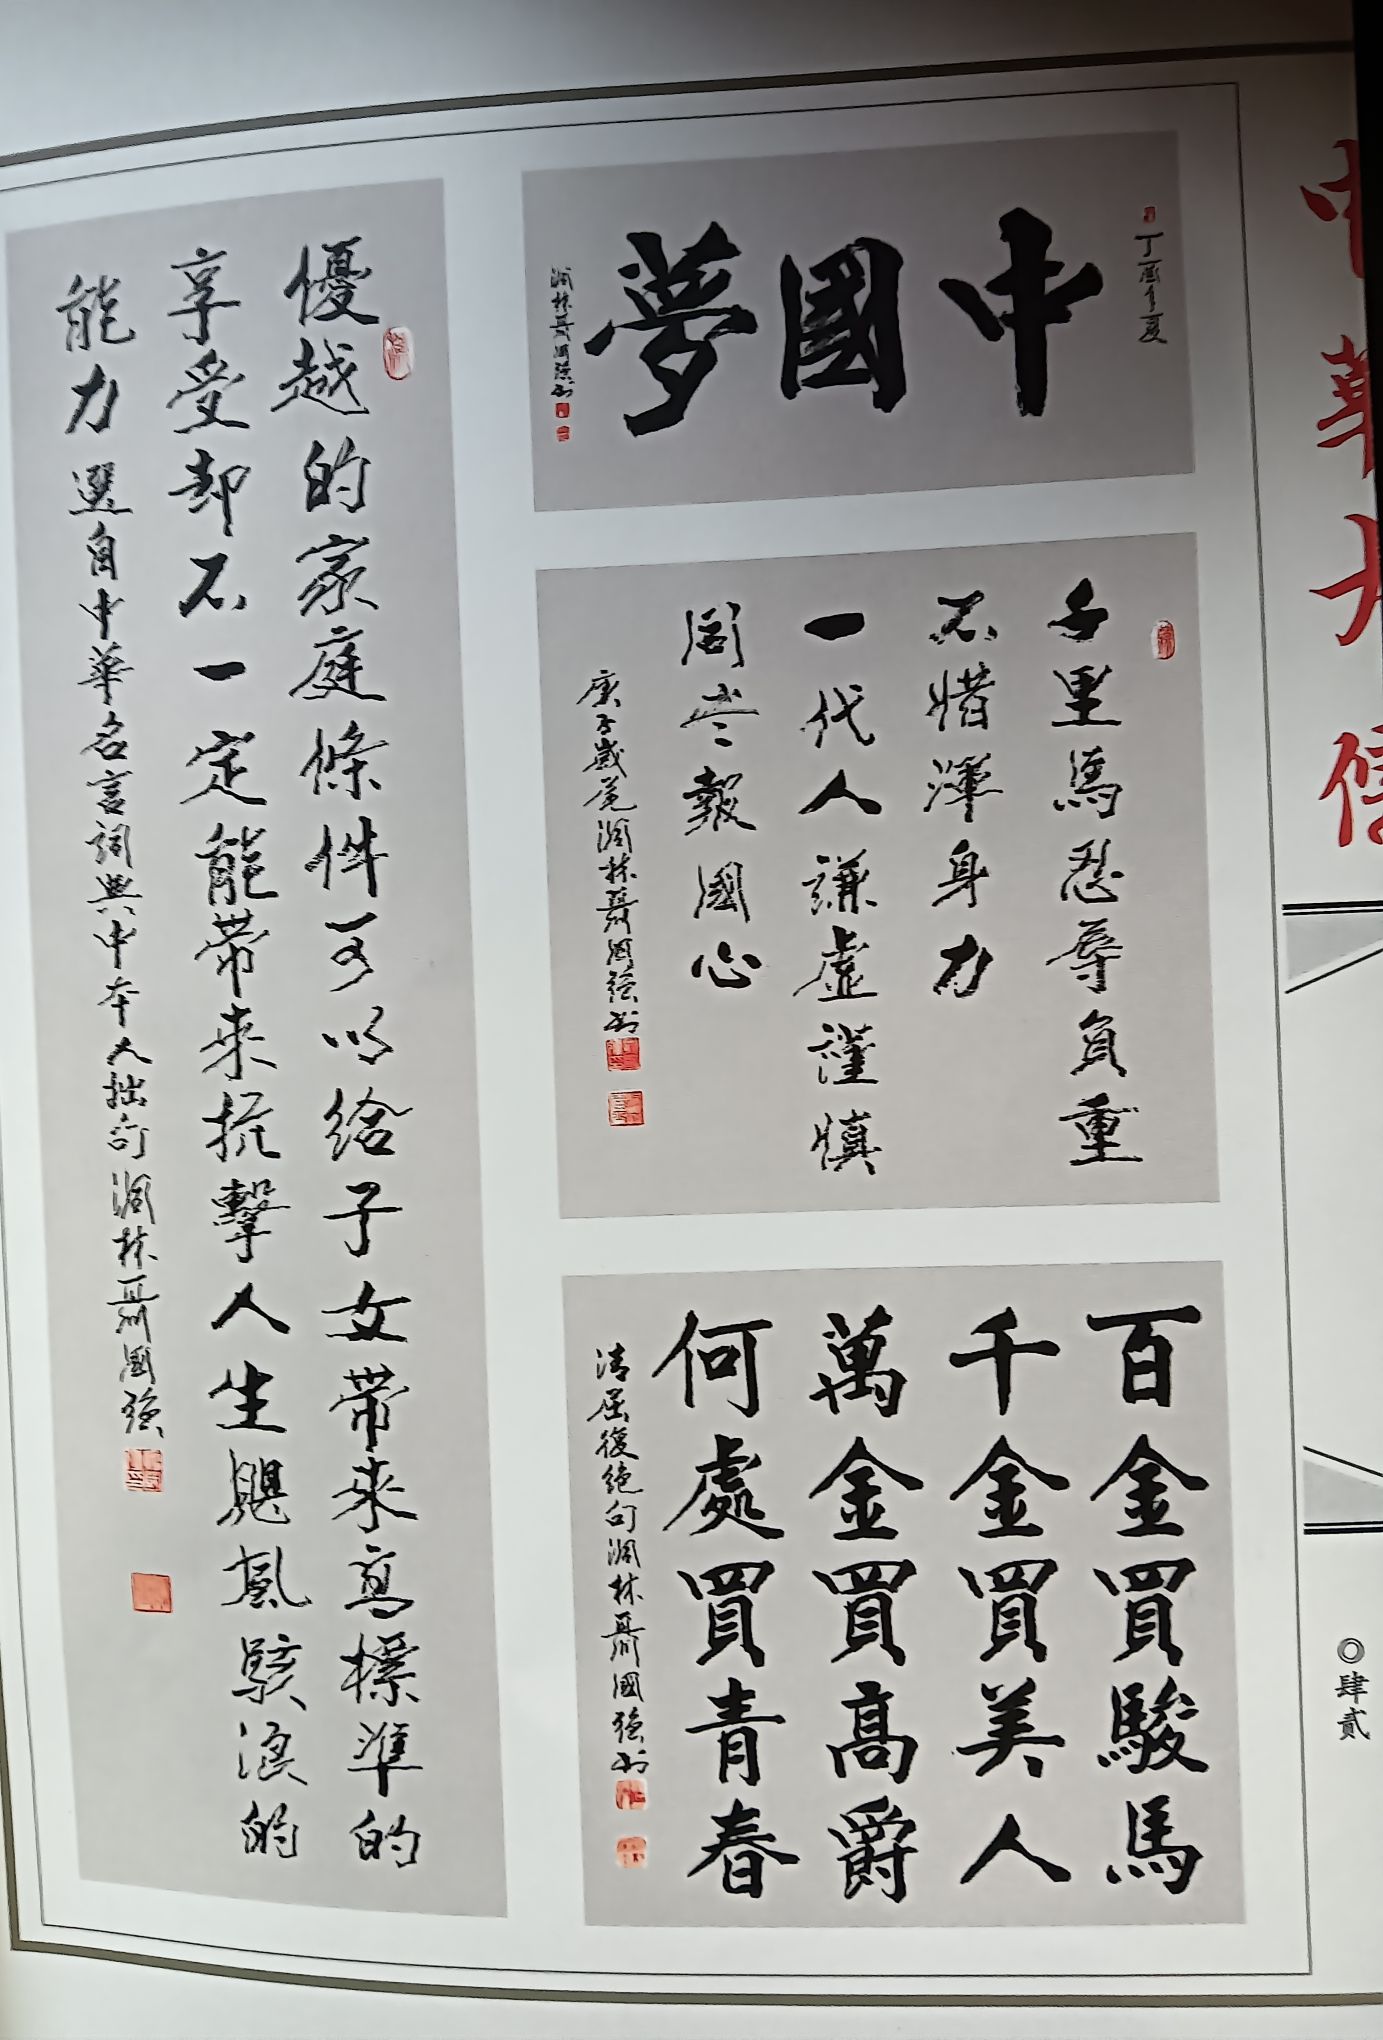 中華大
◎肆貳
丁酉年夏
中國夢
澗林聶國強书
千里馬忍辱負重
不惜渾身力
一代人謙虚謹慎
周岂報國心
庚子歲尾澗林聶國強书
百金買駿馬
千金買美人
萬金買高爵
何處買青春
清屈復绝句澗林聶國強书
優越的家庭條件可以给子女带来高標準的
享受却不一定能带来抗擊人生颶風駭浪的
能力
選自中華名言詞典中本人拙句澗林聶國強